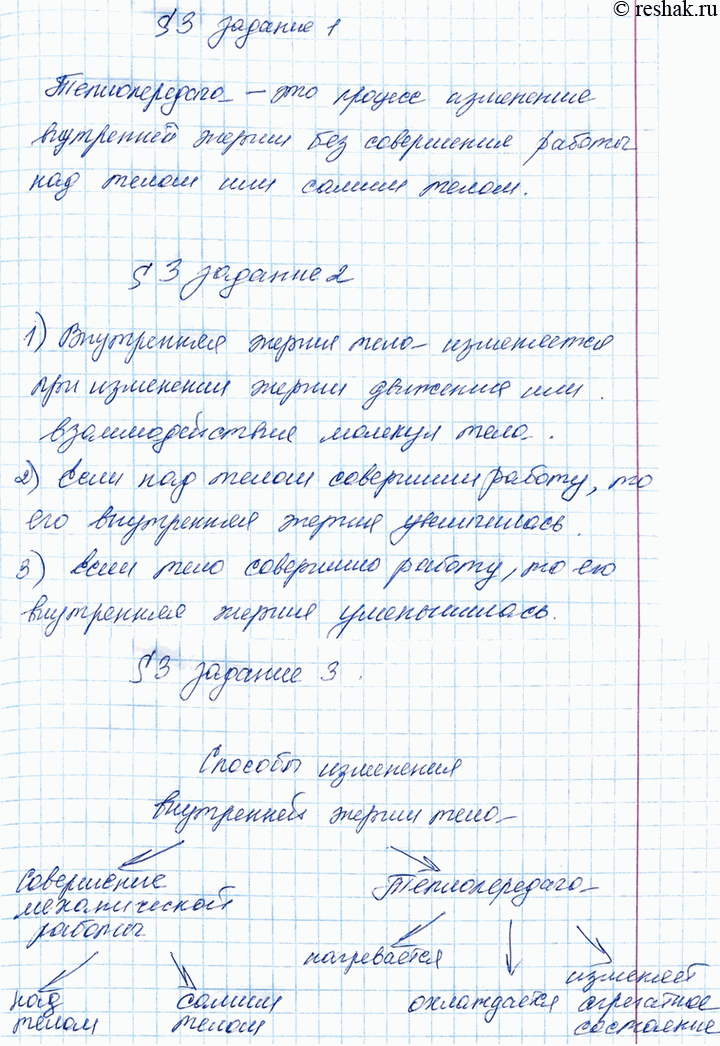 © reshak.ru
§3 задание 1
Теплопередача – это процесс изменение
внутренней энергии без совершения работы
над телом или самим телом.
§3 задание 2
1) Внутренняя энергия тела изменяется
при изменении энергии движения или
взаимодействия молекул тела.
2) Если над телом совершили работу, то
его внутренняя энергия увеличилась.
3) Если тело совершило работу, то его
внутренняя энергия уменьшилась.
§3 задание 3.
Способы изменения
внутренней энергии тела
Совершение Теплопередача
механической
работы
нагревается охлаждается изменяет
агрегатное
состояние
над самим
телом телом